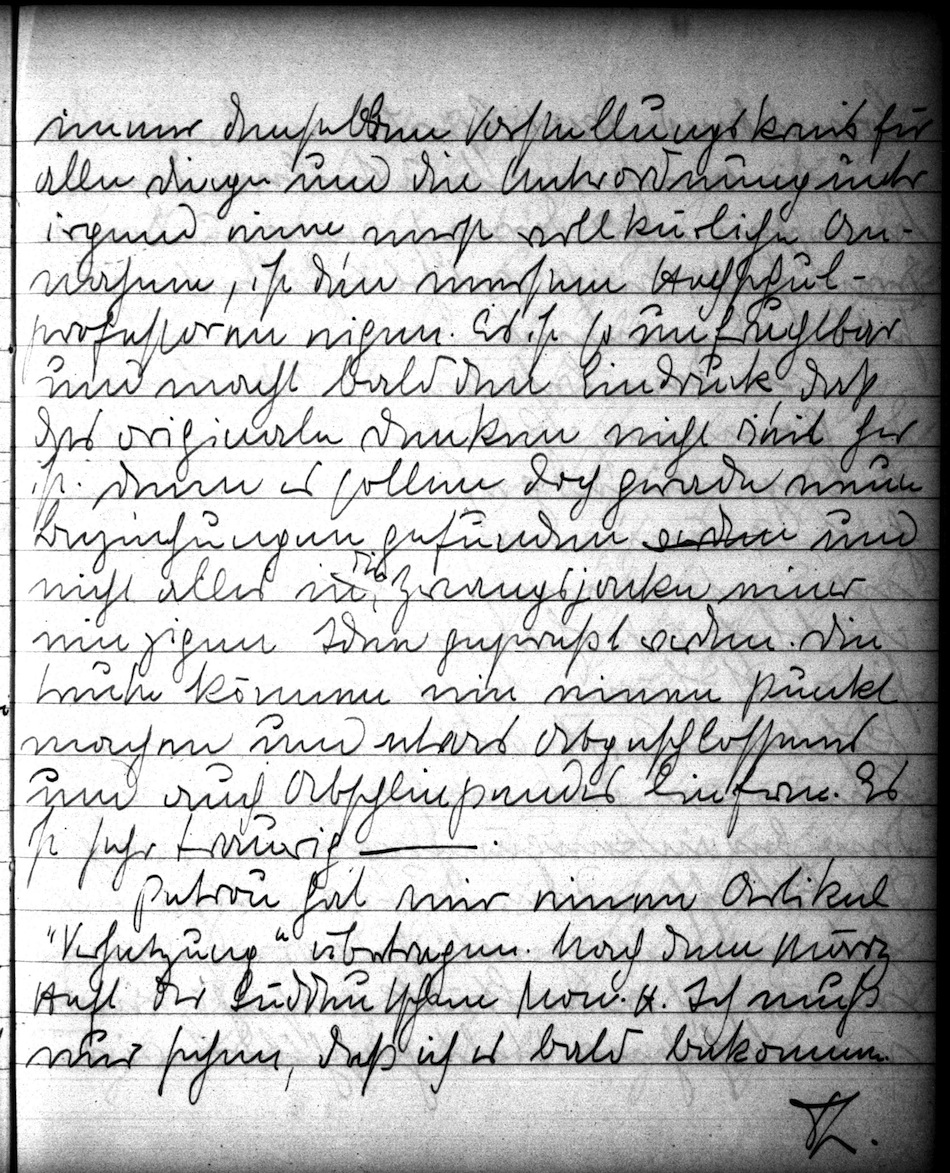 immer denselben Vorstellungskreis für
alle Dinge und die Unterordnung unter
irgend eine meist willkürliche An-
nahme, ist den meisten Hochschul-
professoren eigen. Es ist so unfruchtbar
und macht bald den Eindruck, daß
das originale Denken nicht weit her
ist. Denn es sollen doch gerade neue
Beziehungen gefunden werden und
nicht alles in die Zwangsjacke einer
einzigen Idee gepreßt werden. Die
Leute können nie einen Punkt
machen und etwas Abgeschlossenes
und auch Abschließendes liefern. Es
ist sehr traurig ———.
Petrou hat mir einen Artikel
"Versetzung" übertragen. Nach dem März
Heft der Süddeutschen Mon. H. Ich muß
nur sehen, daß ich es bald bekomme.